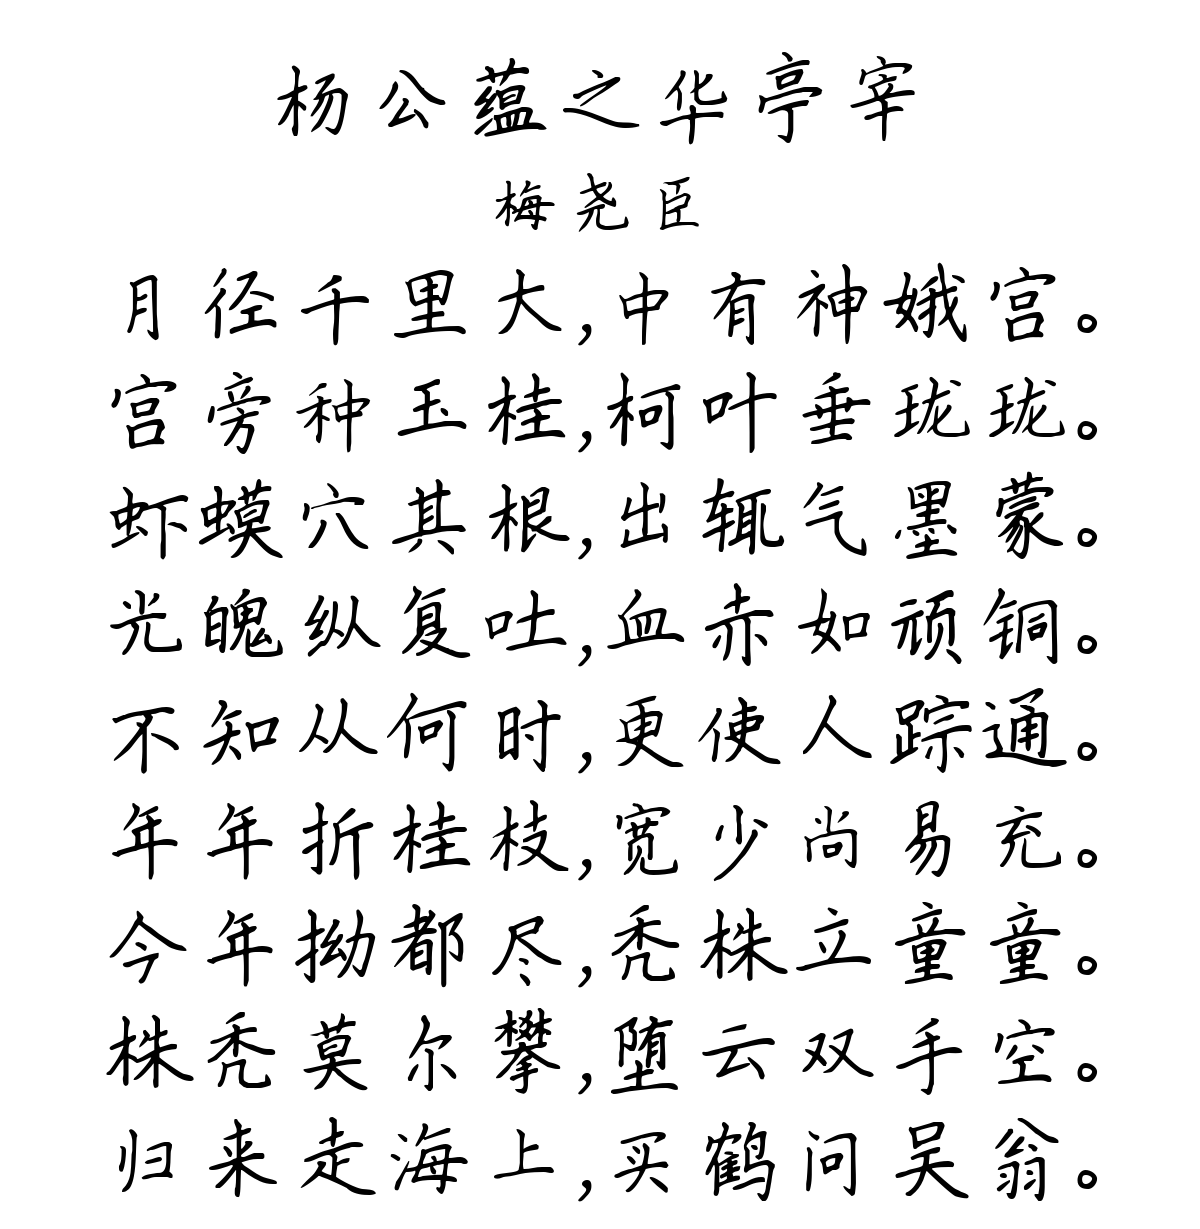 杨公蕴之华亭宰
梅尧臣
月径千里大,中有神娥宫。
宫旁种玉桂,柯叶垂珑珑。
虾蟆穴其根,出辄气墨蒙。
光魄纵复吐,血赤如顽铜。
不知从何时,更使人踪通。
年年折桂枝,宽少尚易充。
今年拗都尽,秃株立童童。
株秃莫尔攀,堕云双手空。
归来走海上,买鹤问吴翁。